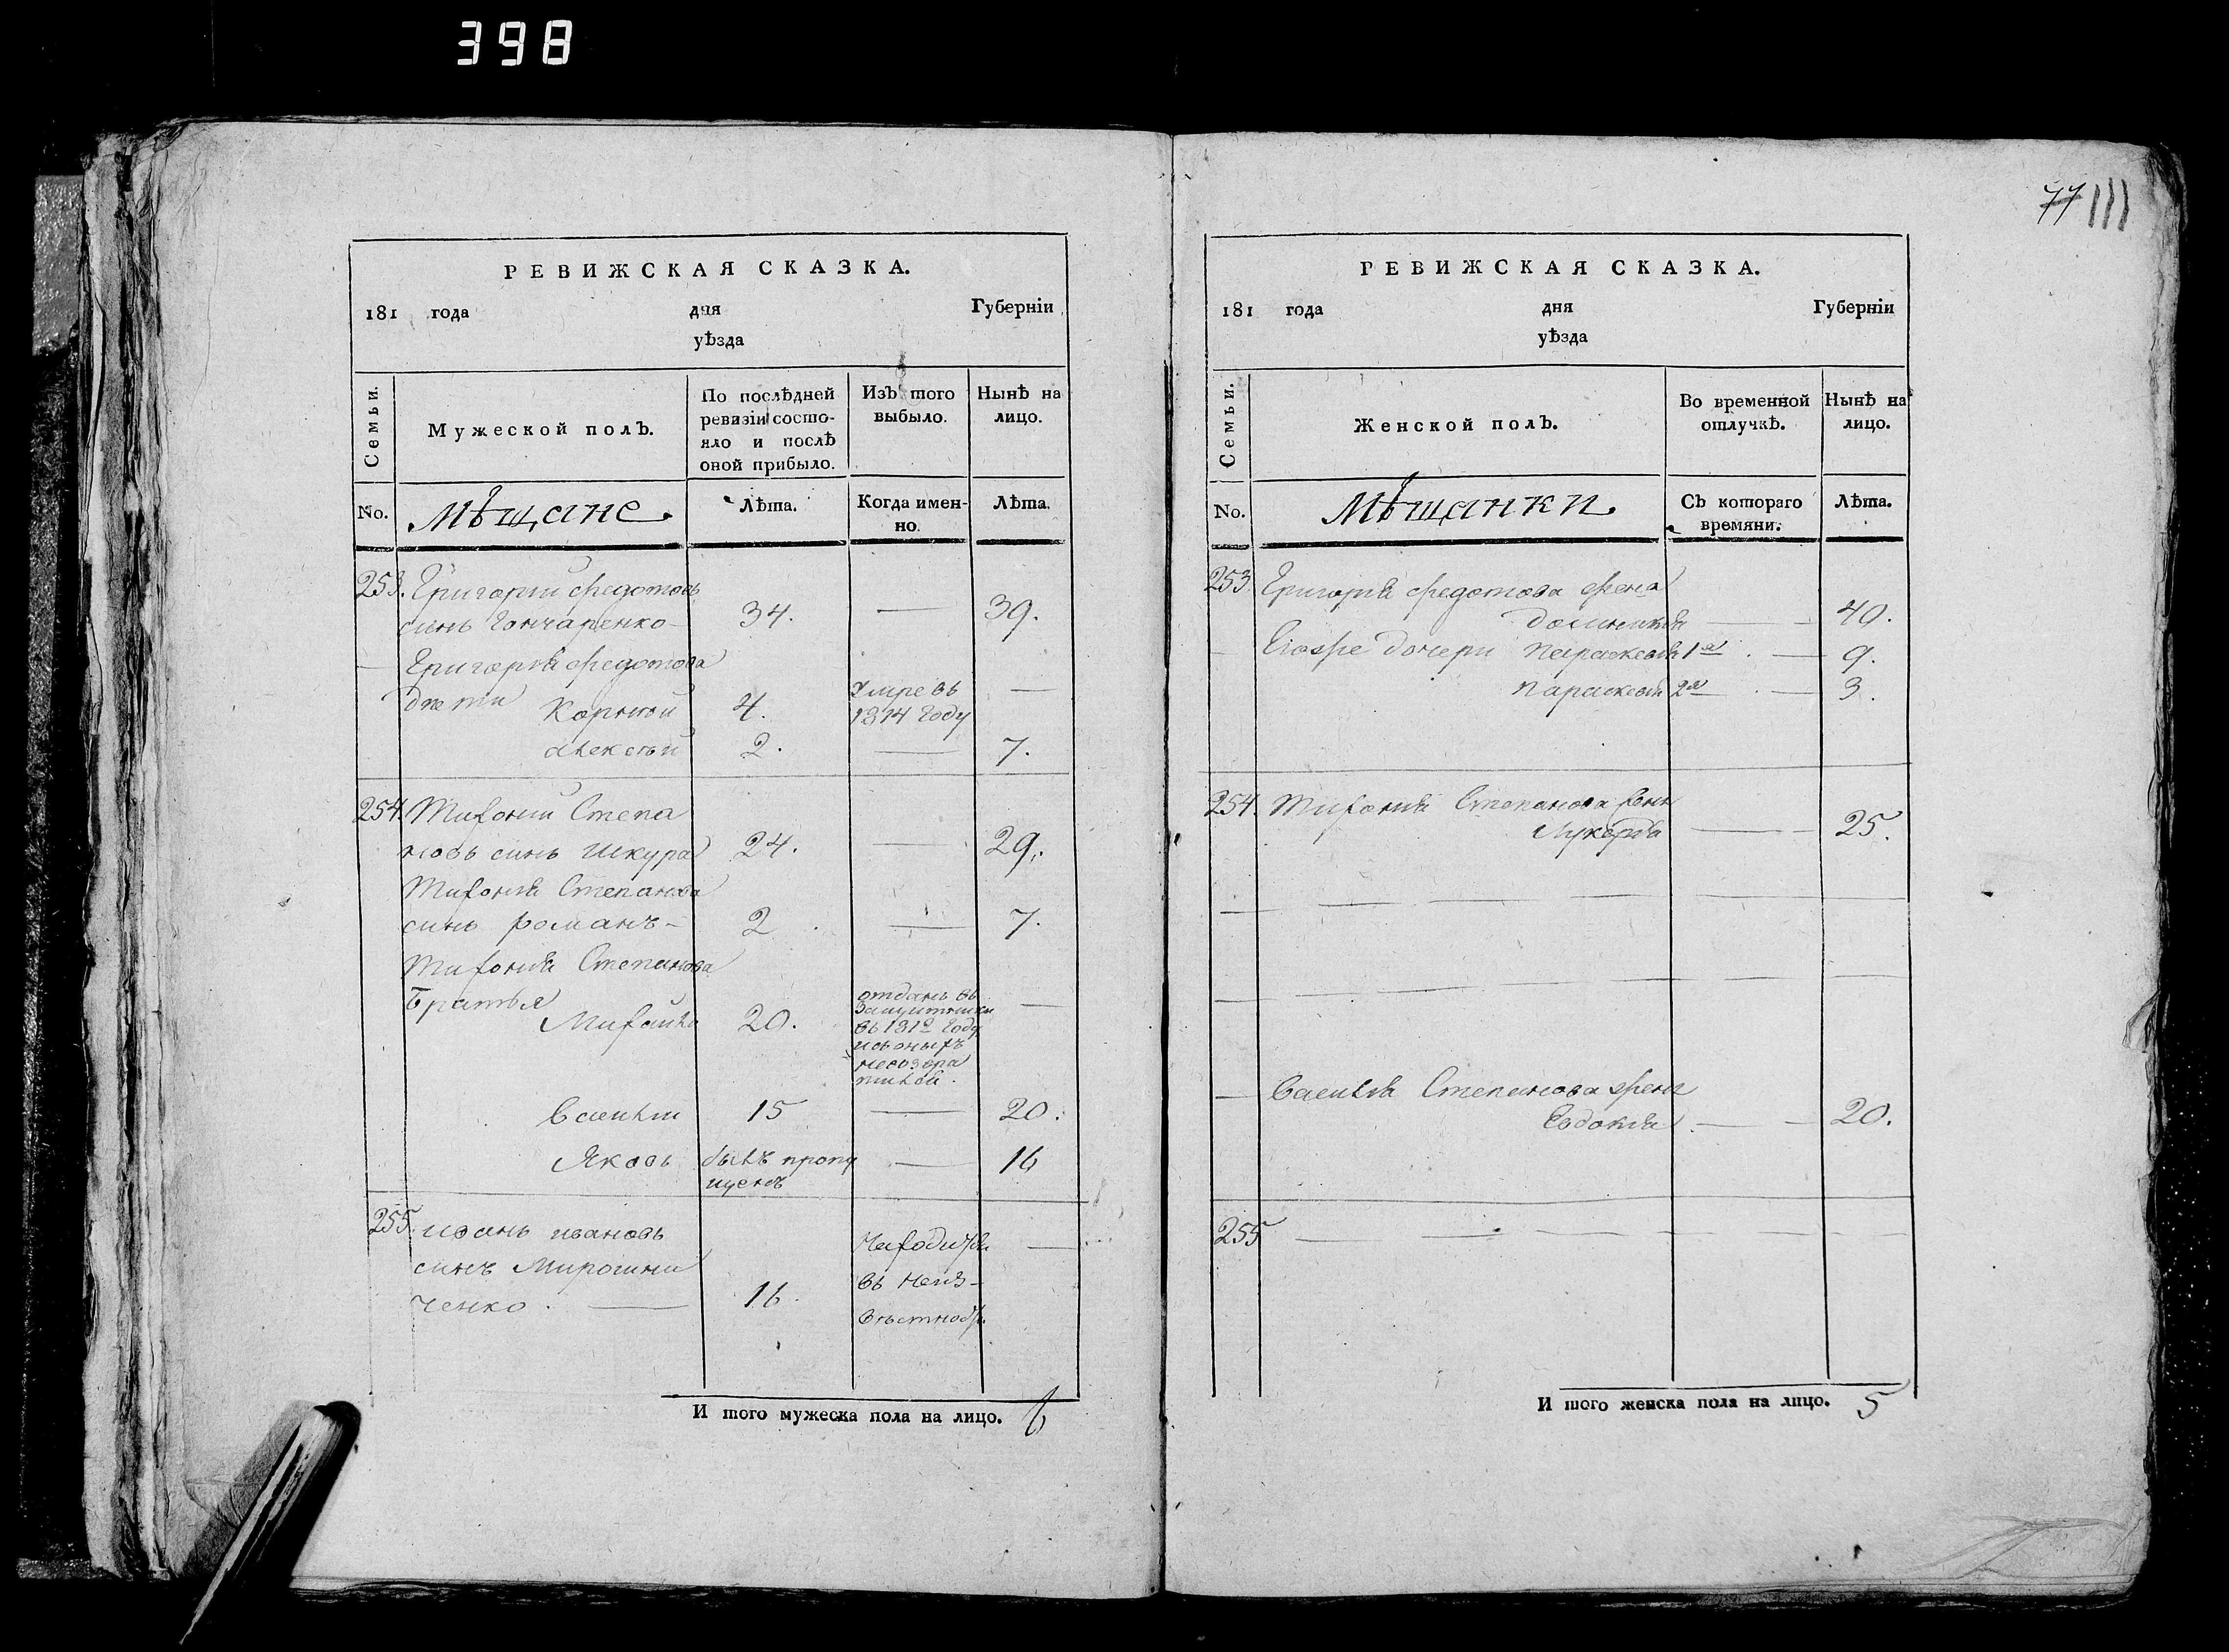 398
77 111
РЕВИЖСКАЯ СКАЗКА.
181 года дня Губерніи
уѣзда
Семьи.
Мужеской полъ.
По послѣдней
ревизіи состо-
яло и послѣ
оной прибыло.
Изъ того
выбыло.
Нынѣ на
лицо.
No.
мѣщане
Лѣта.
Когда имен-
но.
Лѣта.
253. Григорий Федотовъ
синъ Гончаренко 34. — 39.
— Григорія Федотова
дѣти Корнѣй 4. Умре въ —
1814 году
Алексѣй 2. — 7.
254. Тихоний Степа
новъ синъ Шкура 24. — 29.
Тихонія Степанова
синъ романъ - 2 — 7.
Тихонія Степанова
Братья
Михайло 20. отданъ въ —
въ 1812 году
невозвра
Василий 15 — 20.
Яковъ былъ пропу — 16
щенъ
255. иванъ ивановъ
синъ Мирошни
ченко. — 16.
находится —
въ неиз-
вѣстности
И того мужеска пола на лицо. 6
РЕВИЖСКАЯ СКАЗКА.
181 года дня Губерніи
уѣзда
Семьи.
Женской полъ.
Во временной
отлучкѣ.
Нынѣ на
лицо.
No.
мѣщанки
Съ котораго
времяни.
Лѣта.
253 Григорія Федотова жена
— 40.
Егоже дочери Параскевія 1я — 9.
Параскевія 2я — 3.
254. Тихонія Степанова жена
— 25.
— Василія Степанова жена
Евдокія — 20.
255 —
И того женска пола на лицо. 5